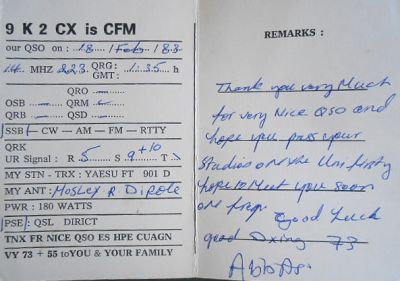 9 K 2 CX is CFM
our QSO on : 18 / Feb / 83
14 MHZ 223 QRG : GMT : 1:35 h
QRO —
OSB — QRM —
QRB — QSD —
SSB — CW — AM — FM — RTTY
QRK
UR Signal : R 5 S 9 +10 T
MY STN - TRX : YAESU FT 901 D
MY ANT : MOSLEY & Dipole
PWR : 180 WATTS
PSE : QSL DIRICT
TNX FR NICE QSO ES HPE CUAGN
VY 73 + 55 to YOU & YOUR FAMILY
REMARKS :
Thank you very Much
for very Nice QSO and
hope you pass your
Studies on the
hope to Meet you soon
good Luck
good Dxing 73